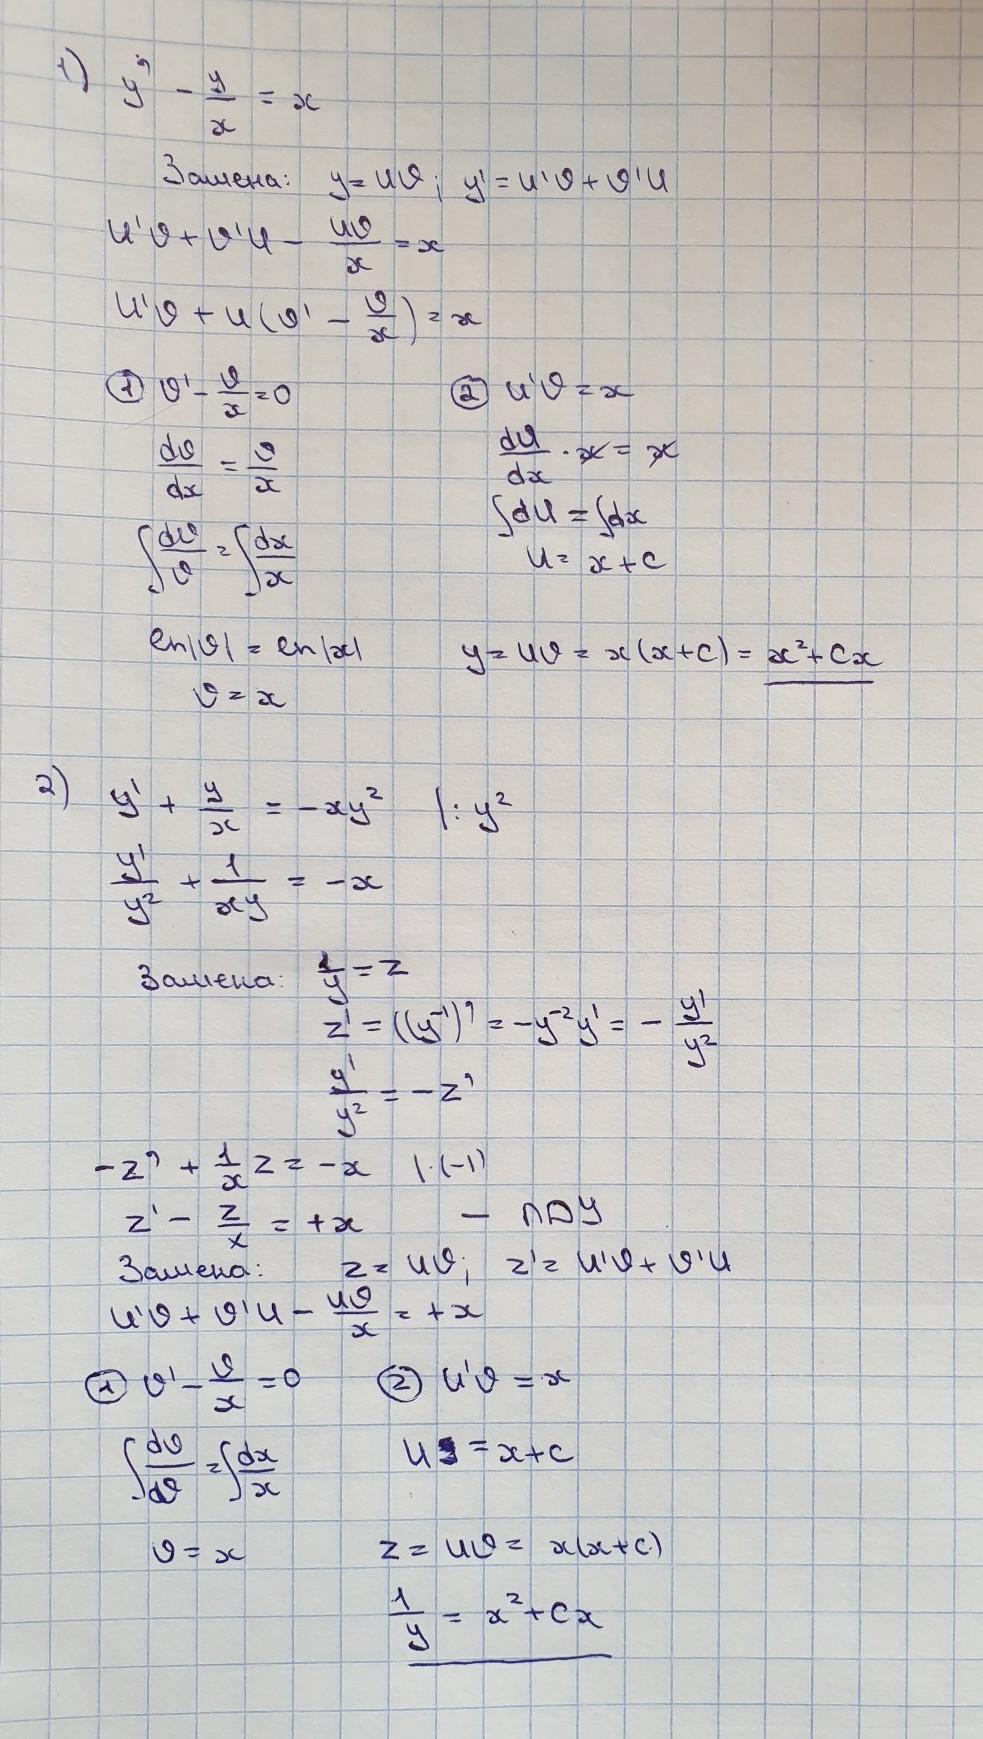 1) y' - y/x = x
Замена: y = uv; y' = u'v + v'u
u'v + v'u - uv/x = x
u'v + u(v' - v/x) = x
① v' - v/x = 0
dv/dx = v/x
∫dv/v = ∫dx/x
ln|v| = ln|x|
v = x
② u'v = x
du/dx · x = x
∫du = ∫dx
u = x + c
y = uv = x(x+c) = x² + cx
2) y' + y/x = -xy² |: y²
y'/y² + 1/xy = -x
Замена: 1/y = z
z' = ((y⁻¹)' = -y⁻²y' = - y'/y²
y'/y² = -z'
-z' + 1/x z = -x |·(-1)
z' - z/x = +x — ЛДУ
Замена: z = uv; z' = u'v + v'u
u'v + v'u - uv/x = +x
① v' - v/x = 0
∫dv/v = ∫dx/x
v = x
② u'v = x
u = x + c
z = uv = x(x+c)
1/y = x² + cx